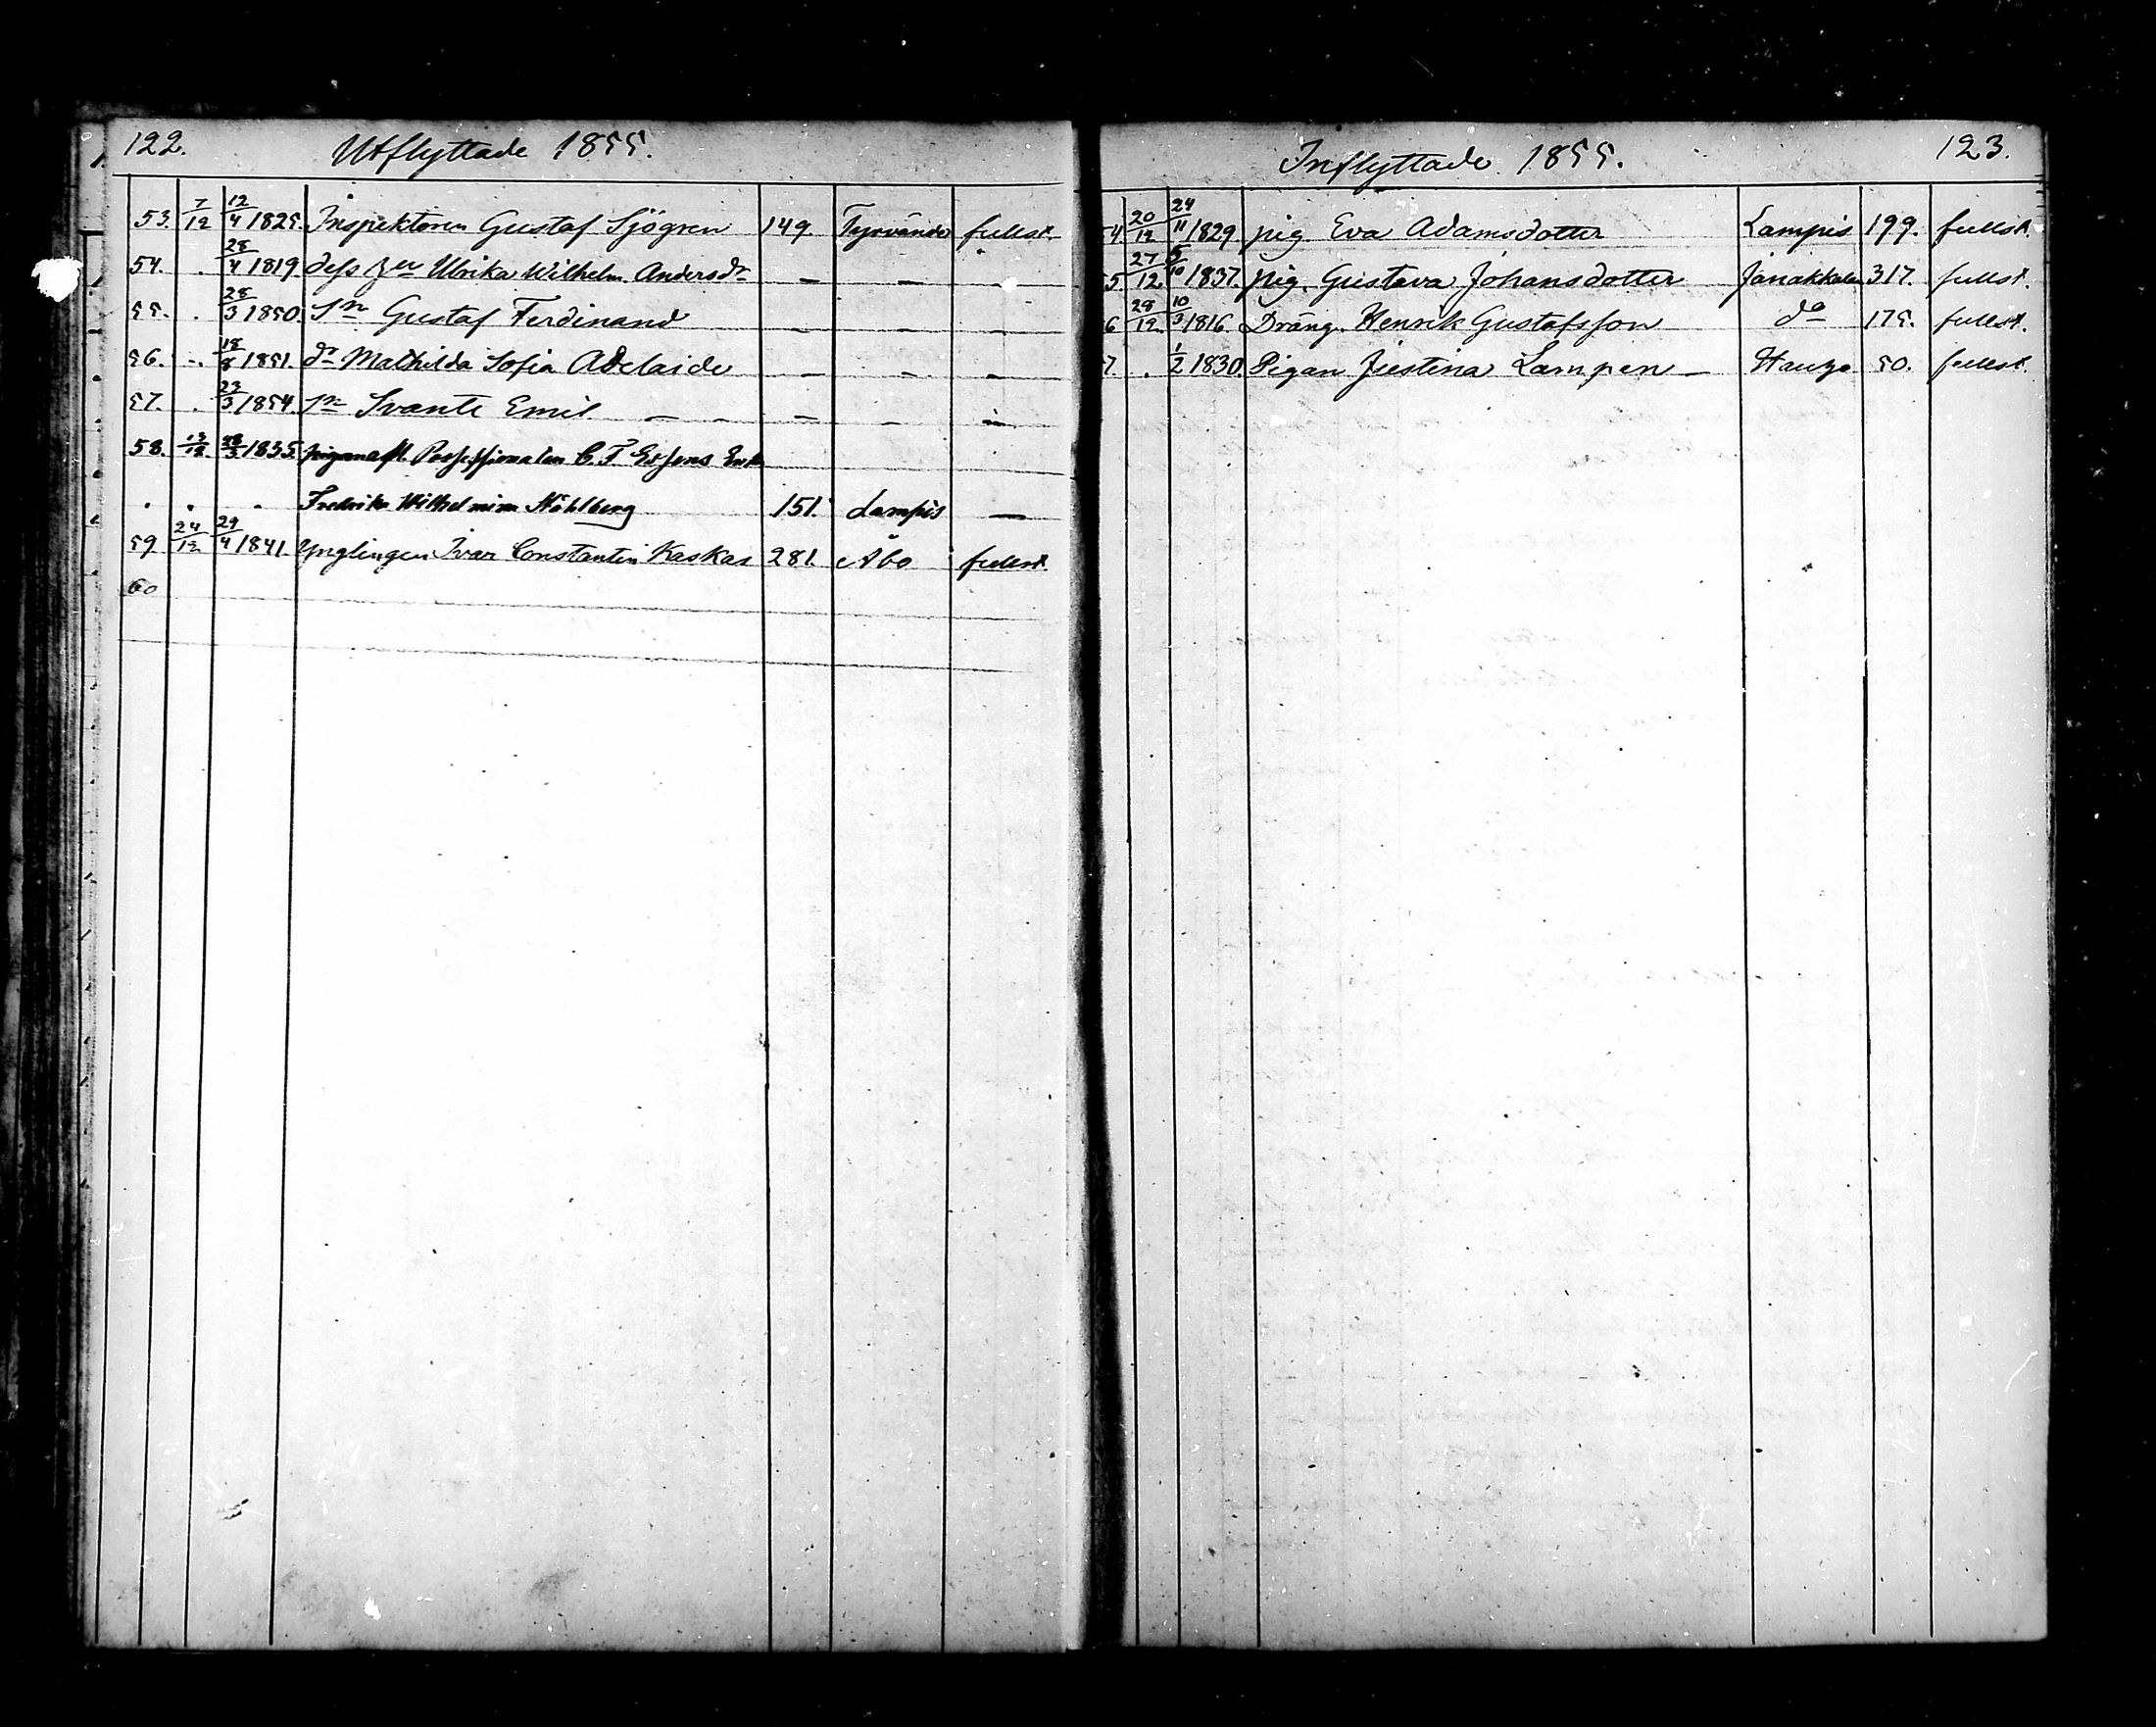 122. Utflyttade 1855.
53. 7/12 12/4 1825. Inspektoren Gustaf Sjögren 149. Tyrvändö fullst.
54. . 28/4 1819 dess Ulrika Wilhelm. Andersdr — — .
55. . 28/3 1850. Sn Gustaf Ferdinand — — —
56. . 18/8 1851. dr Mathilda Sofia Adelaide — — —
57. . 23/3 1854. Sn Svante Emil — — — —
58. 13/12. 28/3 1835. Possessionaten C. F.
. . . Fredrika Wilhelmina Ståhlberg 151. Lampis —
59. 24/12 29/4 1841. Ynglingen Ivar Constantin Kaskas 281. Åbo fullst.
60
Inflyttade 1855. 123.
54. 20/12 24/11 1829 pig. Eva Adamsdotter Lampis 199. fullst.
5. 27/12 5/10 1837. pig. Gustava Johansdotter Janakkala 317. fullst.
6 29/12 10/3 1816. Dräng. Henrik Gustafsson do 175. fullst.
7. . 1/2 1830. Pigan Justina Lampen — Hauho 50. fullst.